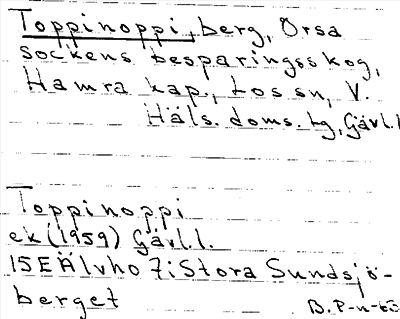 Toppinoppi, berg, Orsa
sockens besparingsskog,
Hamra kap., Los sn, V.
Häls. doms. lg, Gävl.l
Toppinoppi
ek (1959) Gävl.l.
15E Älvho 7i Stora Sundsjö-
berget
B. P-n-63